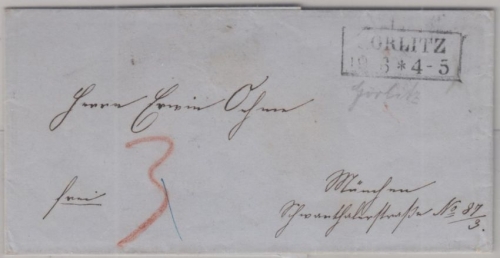 GÖRLITZ
19 6 * 4-5
Görlitz
Herrn Erwin Ohme
frei
3
München
Schwanthalerstraße No 87/3.